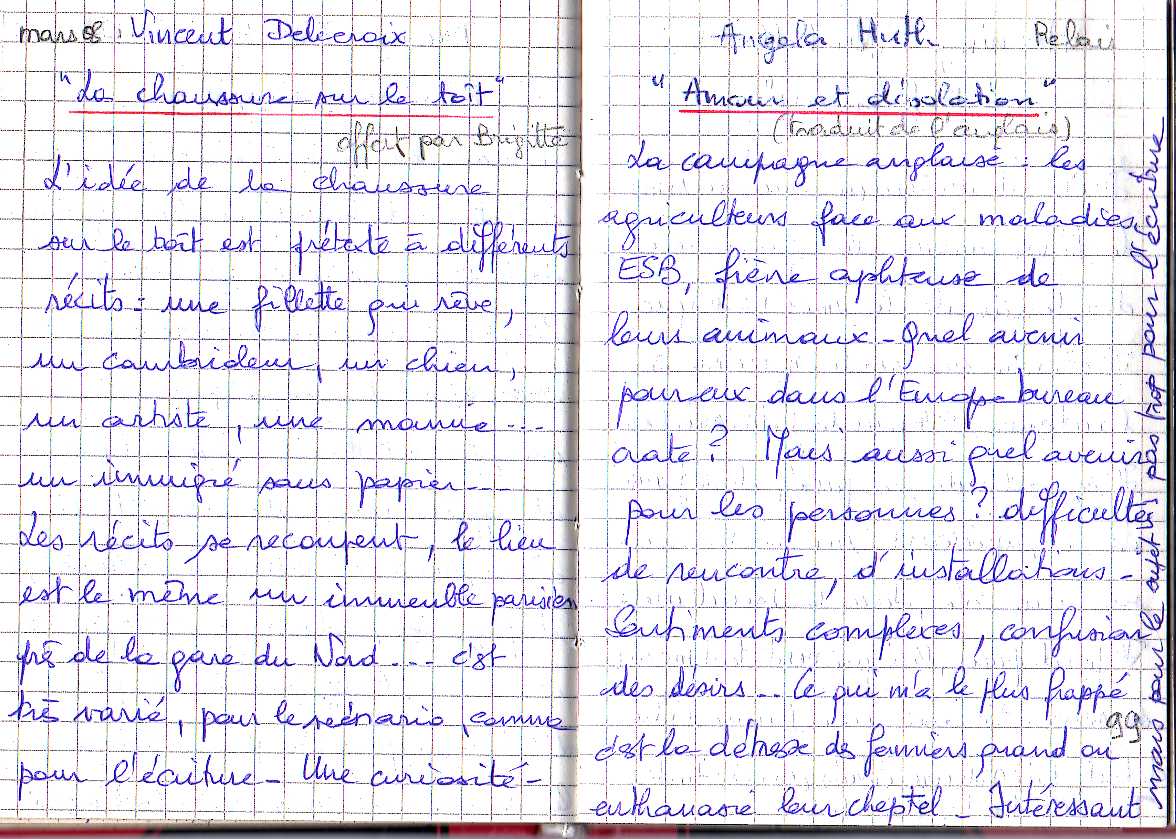 mars 08. Vincent Delecroix
"La chaussure sur le toît"
offert par Brigitte
L'idée de la chaussure
sur le toît est prétexte à différents
récits : une fillette qui rêve,
un cambrioleur, un chien,
un artiste, une mamie...
un immigré sans papier...
Les récits se recoupent, le lieu
est le même un immeuble parisien
près de la gare du Nord... c'est
très varié, pour le scénario, comme
pour l'écriture - Une curiosité -
Angela Huth Relais
"Amour et désolation"
(traduit de l'anglais)
La campagne anglaise : les
agriculteurs face aux maladies,
ESB, fièvre aphteuse de
leurs animaux - Quel avenir
pour eux dans l'Europe bureau
crate ? Mais aussi quel avenir
pour les personnes ? difficultés
de rencontre, d'installations -
Sentiments complexes, confusion
des désirs... Ce qui m'a le plus frappé
c'est la détresse des fermiers quand on
euthanasie leur cheptel - Intéressant
mais pour le sujet, pas trop pour l'écriture
99